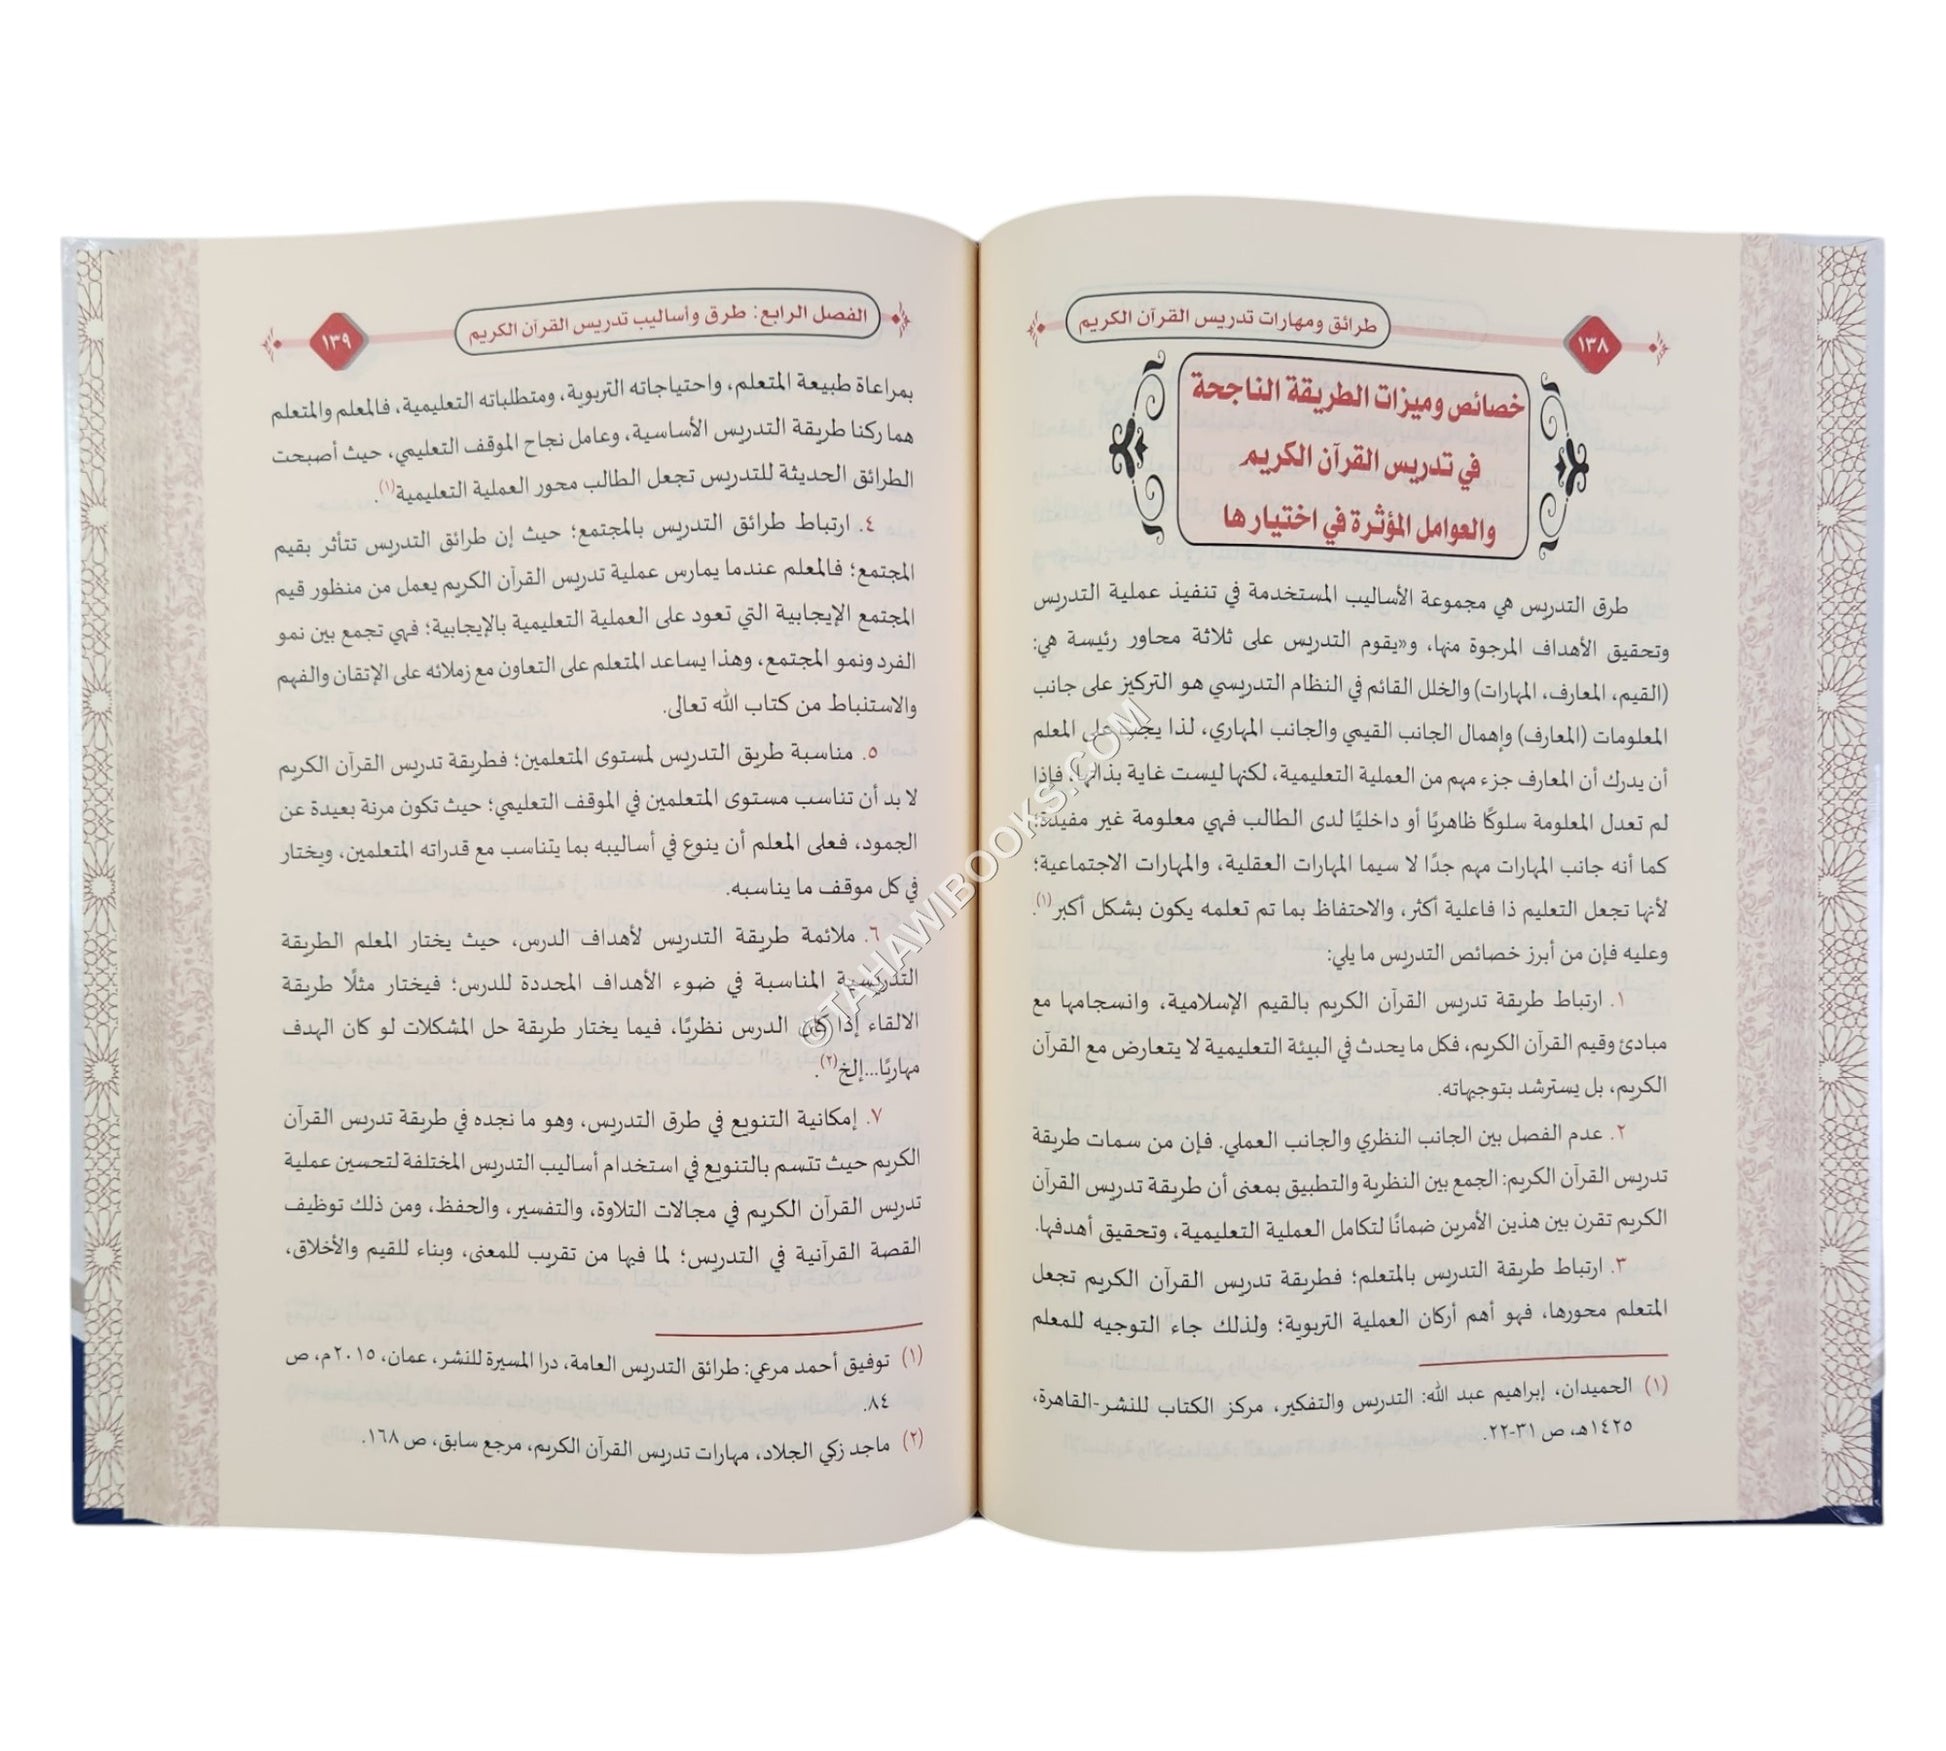 ١٣٨
طرائق ومهارات تدريس القرآن الكريم
خصائص وميزات الطريقة الناجحة
في تدريس القرآن الكريم
والعوامل المؤثرة في اختيارها
طرق التدريس هي مجموعة الأساليب المستخدمة في تنفيذ عملية التدريس
وتحقيق الأهداف المرجوة منها، و«يقوم التدريس على ثلاثة محاور رئيسة هي:
(القيم، المعارف، المهارات) والخلل القائم في النظام التدريسي هو التركيز على جانب
المعلومات (المعارف) وإهمال الجانب القيمي والجانب المهاري، لذا يجب على المعلم
أن يدرك أن المعارف جزء مهم من العملية التعليمية، لكنها ليست غاية بذاتها، فإذا
لم تعدل المعلومة سلوكًا ظاهريًا أو داخليًا لدى الطالب فهي معلومة غير مفيدة؛
كما أنه جانب المهارات مهم جدًا لا سيما المهارات العقلية، والمهارات الاجتماعية؛
لأنها تجعل التعليم ذا فاعلية أكثر، والاحتفاظ بما تم تعلمه يكون بشكل أكبر(١).
وعليه فإن من أبرز خصائص التدريس ما يلي:
١. ارتباط طريقة تدريس القرآن الكريم بالقيم الإسلامية، وانسجامها مع
مبادئ وقيم القرآن الكريم، فكل ما يحدث في البيئة التعليمية لا يتعارض مع القرآن
الكريم، بل يسترشد بتوجيهاته.
٢. عدم الفصل بين الجانب النظري والجانب العملي. فإن من سمات طريقة
تدريس القرآن الكريم: الجمع بين النظرية والتطبيق بمعنى أن طريقة تدريس القرآن
الكريم تقرن بين هذين الأمرين ضمانًا لتكامل العملية التعليمية، وتحقيق أهدفها.
٣. ارتباط طريقة التدريس بالمتعلم؛ فطريقة تدريس القرآن الكريم تجعل
المتعلم محورها، فهو أهم أركان العملية التربوية؛ ولذلك جاء التوجيه للمعلم
(١) الحميدان، إبراهيم عبد الله: التدريس والتفكير، مركز الكتاب للنشر-القاهرة،
١٤٢٥هـ، ص ٣١-٢٢.
الفصل الرابع: طرق وأساليب تدريس القرآن الكريم
١٣٩
بمراعاة طبيعة المتعلم، واحتياجاته التربوية، ومتطلباته التعليمية، فالمعلم والمتعلم
هما ركنا طريقة التدريس الأساسية، وعامل نجاح الموقف التعليمي، حيث أصبحت
الطرائق الحديثة للتدريس تجعل الطالب محور العملية التعليمية(١).
٤. ارتباط طرائق التدريس بالمجتمع؛ حيث إن طرائق التدريس تتأثر بقيم
المجتمع؛ فالمعلم عندما يمارس عملية تدريس القرآن الكريم يعمل من منظور قيم
المجتمع الإيجابية التي تعود على العملية التعليمية بالإيجابية؛ فهي تجمع بين نمو
الفرد ونمو المجتمع، وهذا يساعد المتعلم على التعاون مع زملائه على الإتقان والفهم
والاستنباط من كتاب الله تعالى.
٥. مناسبة طريق التدريس لمستوى المتعلمين؛ فطريقة تدريس القرآن الكريم
لا بد أن تناسب مستوى المتعلمين في الموقف التعليمي؛ حيث تكون مرنة بعيدة عن
الجمود، فعلى المعلم أن ينوع في أساليبه بما يتناسب مع قدراته المتعلمين، ويختار
في كل موقف ما يناسبه.
٦. ملائمة طريقة التدريس لأهداف الدرس، حيث يختار المعلم الطريقة
التدريسية المناسبة في ضوء الأهداف المحددة للدرس؛ فيختار مثلًا طريقة
الالقاء إذا كان الدرس نظريًا، فيما يختار طريقة حل المشكلات لو كان الهدف
مهاريًا...إلخ(٢).
٧. إمكانية التنويع في طرق التدريس، وهو ما نجده في طريقة تدريس القرآن
الكريم حيث تتسم بالتنويع في استخدام أساليب التدريس المختلفة لتحسين عملية
تدريس القرآن الكريم في مجالات التلاوة، والتفسير، والحفظ، ومن ذلك توظيف
القصة القرآنية في التدريس؛ لما فيها من تقريب للمعنى، وبناء للقيم والأخلاق،
(١) توفيق أحمد مرعي: طرائق التدريس العامة، درا المسيرة للنشر، عمان، ٢٠١٥م، ص
٨٤.
(٢) ماجد زكي الجلاد، مهارات تدريس القرآن الكريم، مرجع سابق، ص ١٦٨.
©TAHAWIBOOKS.COM